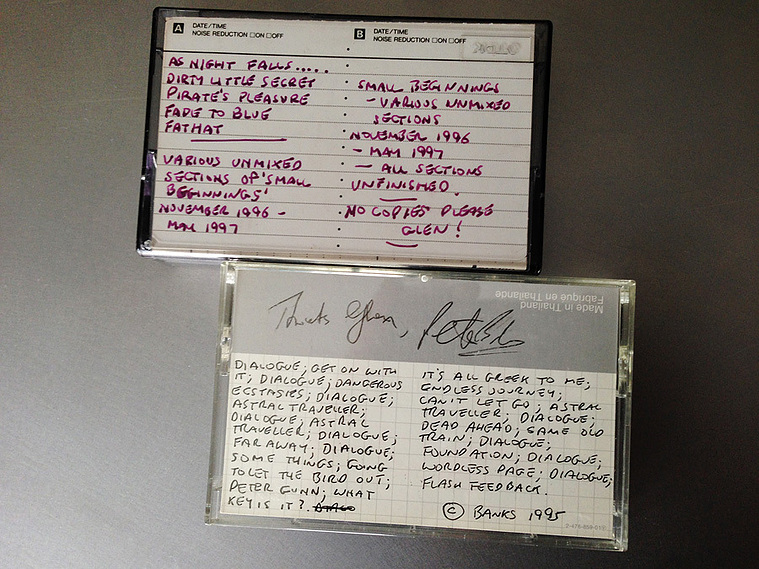 A DATE/TIME
NOISE REDUCTION □ON □OFF
AS NIGHT FALLS.....
DIRTY LITTLE SECRET
PIRATE'S PLEASURE
FADE TO BLUE
FATHAT
VARIOUS UNMIXED
SECTIONS OF 'SMALL
BEGINNINGS'
NOVEMBER 1996 -
MAY 1997
B DATE/TIME
NOISE REDUCTION □ON □OFF
SMALL BEGINNINGS
- VARIOUS UNMIXED
SECTIONS
NOVEMBER 1996
- MAY 1997
- ALL SECTIONS
UNFINISHED.
NO COPIES PLEASE
GLEN!
Made in Thailand
Fabriqué en Thaïlande
Thanks Glen,
DIALOGUE; GET ON WITH
IT; DIALOGUE; DANGEROUS
ECSTASIES; DIALOGUE;
ASTRAL TRAVELLER;
DIALOGUE; ASTRAL
TRAVELLER; DIALOGUE;
FAR AWAY; DIALOGUE;
SOME THINGS; GOING
TO LET THE BIRD OUT;
PETER GUNN; WHAT
KEY IS IT?
IT'S ALL GREEK TO ME;
ENDLESS JOURNEY;
CAN'T LET GO; ASTRAL
TRAVELLER; DIALOGUE;
DEAD AHEAD; SAME OLD
TRAIN; DIALOGUE;
FOUNDATION; DIALOGUE;
WORDLESS PAGE; DIALOGUE;
FLASH FEEDBACK.
© BANKS 1995